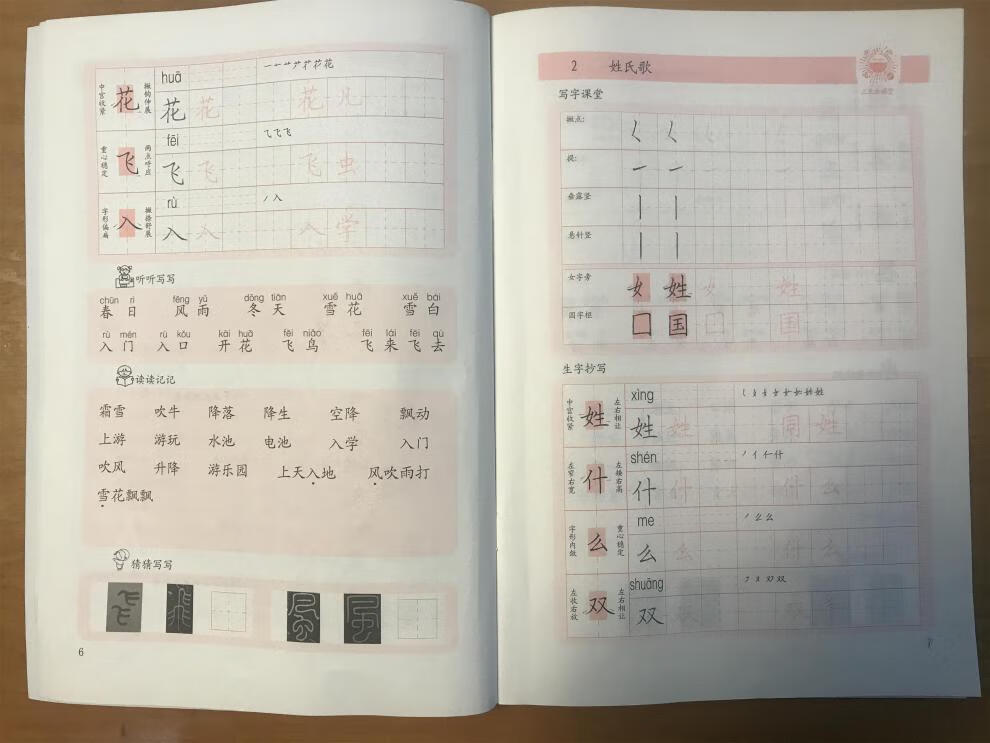 huā
中宫收紧 花 撇钩伸展
花 花 花 凡
fēi
重心稳定 飞 两点呼应
飞 飞 飞 虫
rù
字形偏扁 入 撇捺舒展
入 入 入 学
听听写写
chūn rì fēng yǔ dōng tiān xuě huā xuě bái
春日 风雨 冬天 雪花 雪白
rù mén rù kǒu kāi huā fēi niǎo fēi lái fēi qù
入门 入口 开花 飞鸟 飞来飞去
读读记记
霜雪 吹牛 降落 降生 空降 飘动
上游 游玩 水池 电池 入学 入门
吹风 升降 游乐园 上天入地 风吹雨打
雪花飘飘
猜猜写写
6
2 姓氏歌
写字课堂
撇点:
提:
垂露竖
悬针竖
女字旁 女 姓 女 姓
国字框 囗 国 囗 国
生字抄写
xìng
中宫收紧 姓 左右相让
姓 姓 同 姓
shén
左窄右宽 什 左矮右高
什 什 什 么
me
字形内敛 么 重心稳定
么 么 什 么
shuāng
左收右放 双 左右相让
双
7